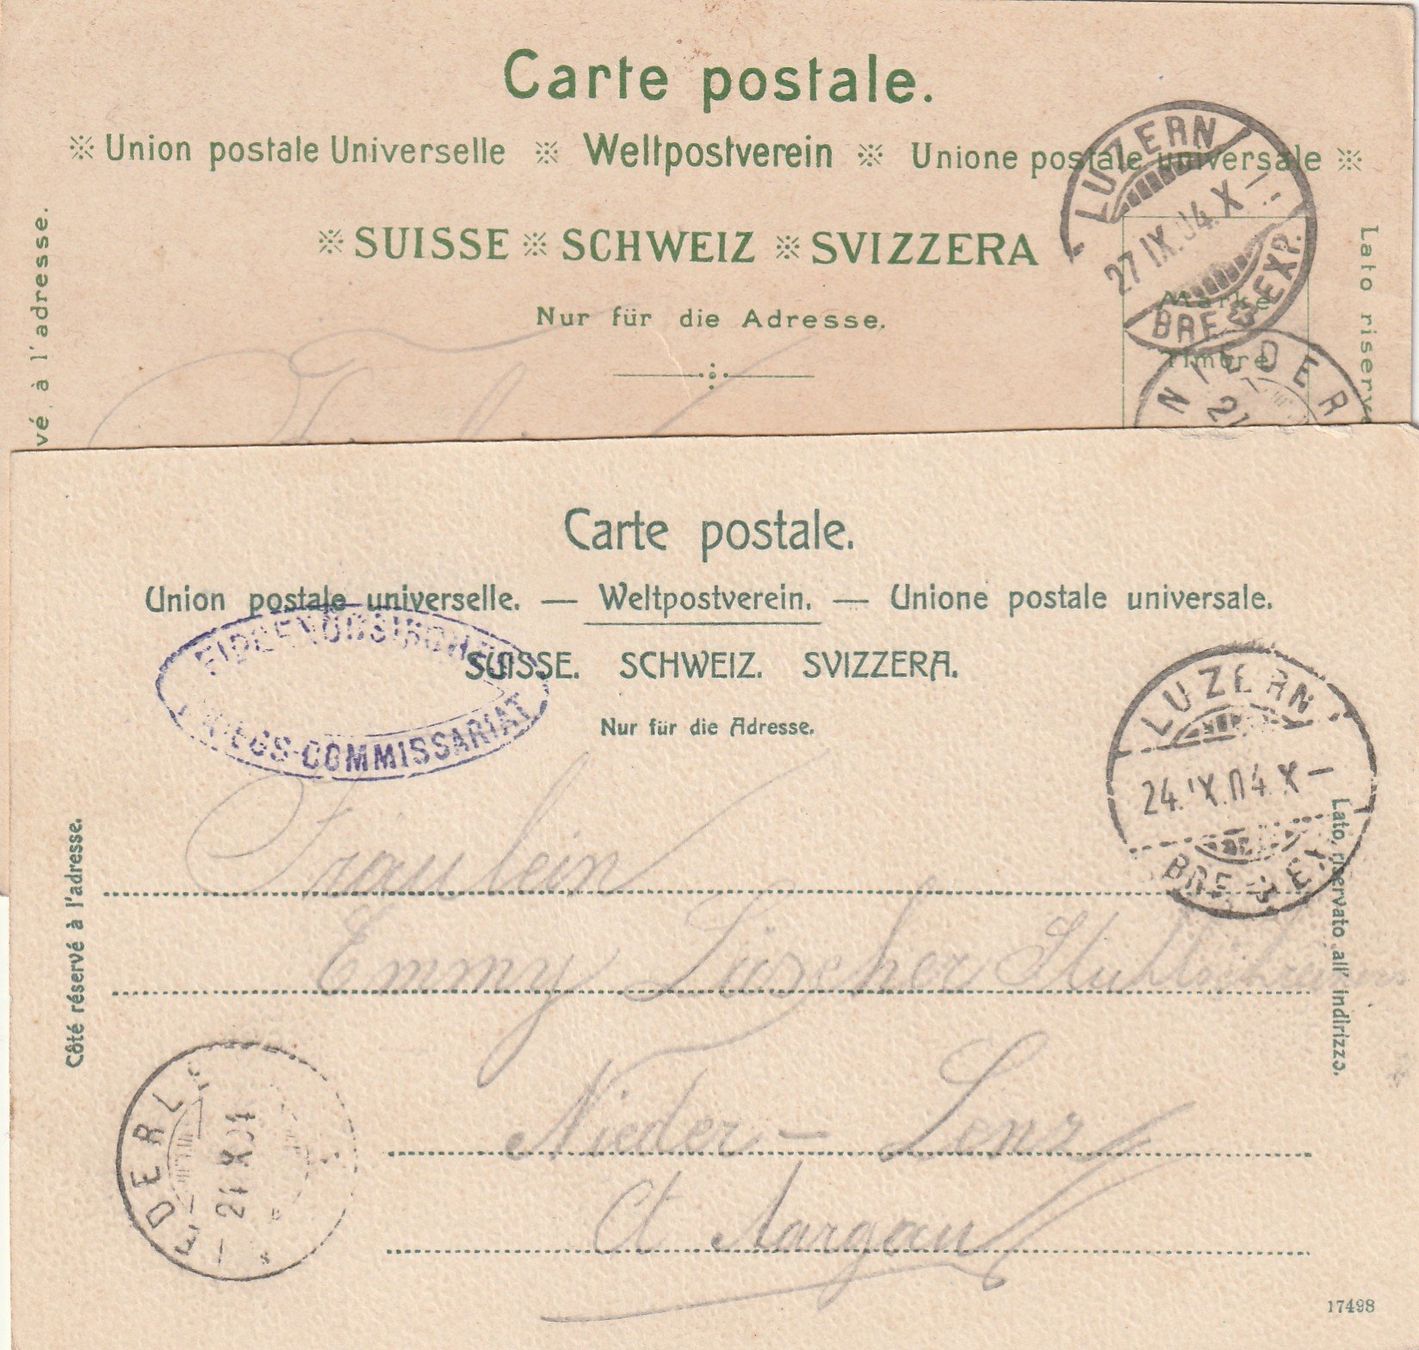 Carte postale.
Union postale Universelle Weltpostverein Unione postale universale
SUISSE SCHWEIZ SVIZZERA
Nur für die Adresse.
vé à l'adresse.
Lato riserv
Marke
Timbre
LUZERN
27 IX.04.X-
BRF. EXP.
NIEDER
21
Carte postale.
Union postale universelle. — Weltpostverein. — Unione postale universale.
SUISSE. SCHWEIZ. SVIZZERA.
Nur für die Adresse.
EIDGENÖSSISCHES
KRIEGS-COMMISSARIAT
LUZERN
24.IX.04.X-
BRF. EX
Côté réservé à l'adresse.
Lato, riservato all' indirizzo.
Fräulein
Emmy Lüscher
Nieder-Lenz
Ct Aargau
IEDERLE
24 IX 04
17498